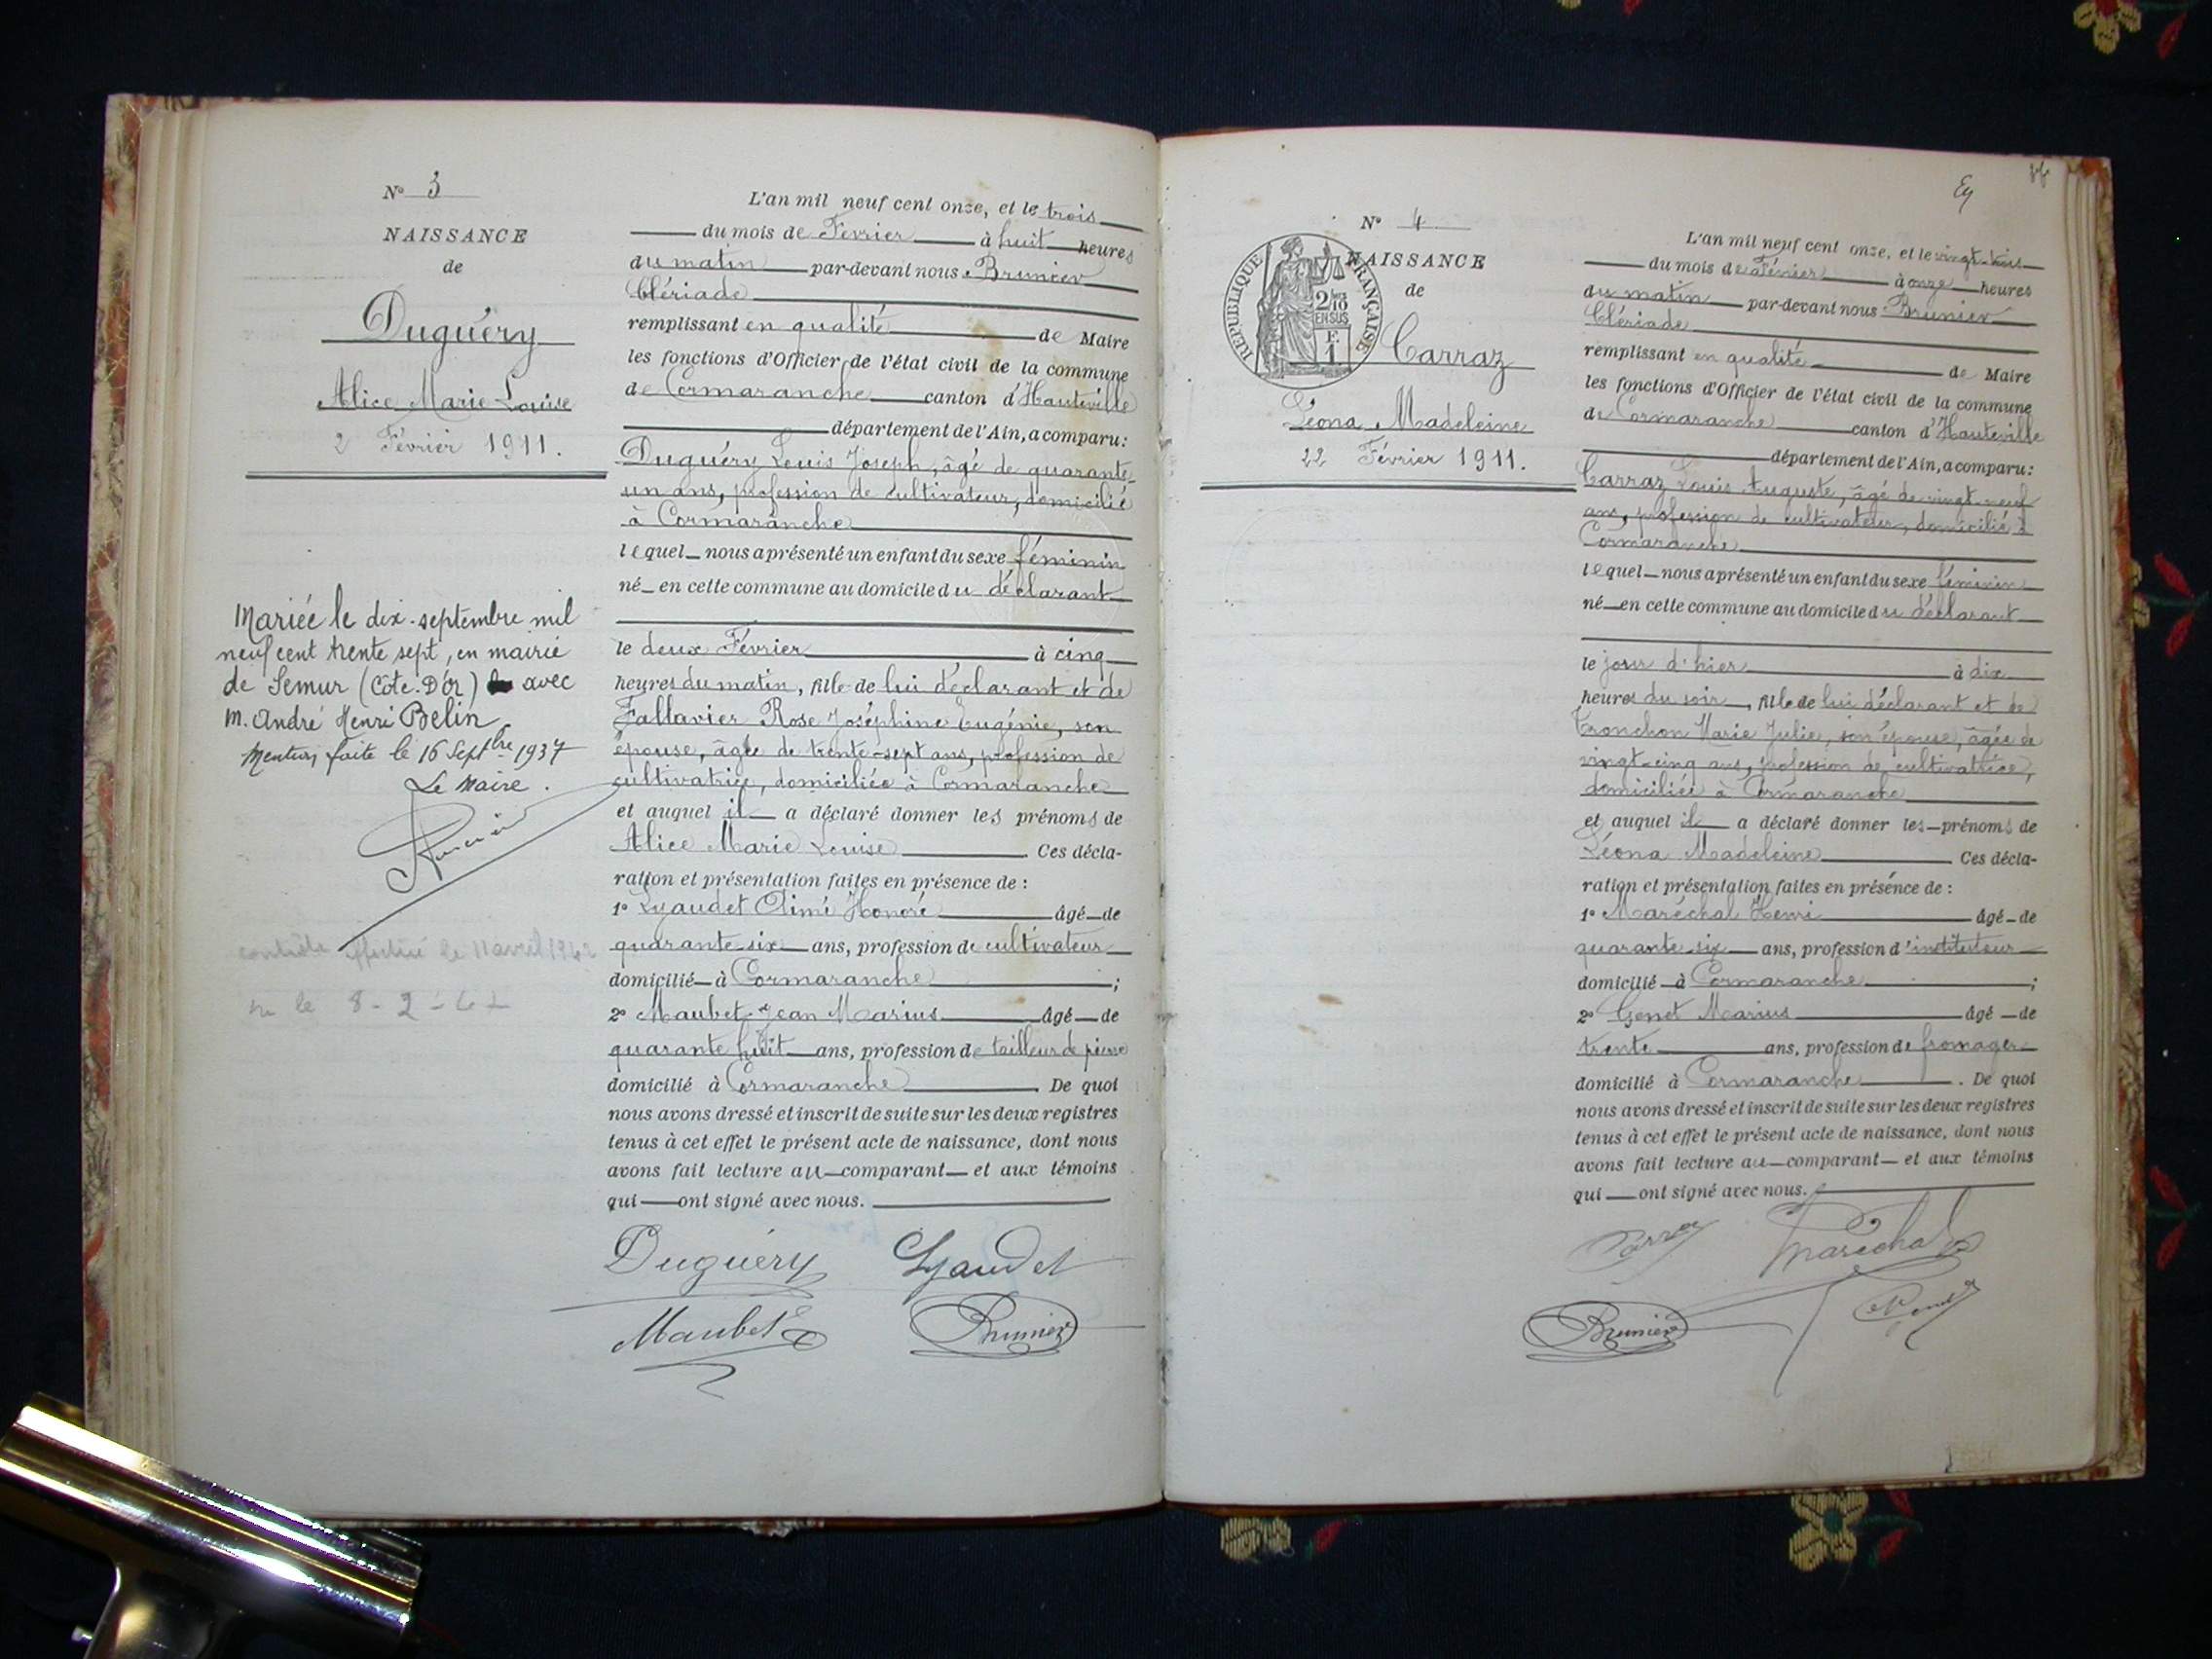 N° 3
NAISSANCE
de
Duguéry
Alice Marie Louise
2 Février 1911.
Mariée le dix-septembre mil
neuf cent trente sept, en mairie
de Semur (Côte-D'or) avec
M. André Henri Belin
Mention faite le 16 Septbre 1937
Le Maire.
contrôle effectué le 11 avril
le 8-2-
L'an mil neuf cent onze, et le trois
du mois de Février à huit heures
du matin par-devant nous Brunier
Clériade
remplissant en qualité de Maire
les fonctions d'Officier de l'état civil de la commune
de Cormaranche canton d'Hauteville
département de l'Ain, a comparu:
Duguéry Louis Joseph, âgé de quarante-
un ans, profession de cultivateur, domicilié
à Cormaranche
lequel nous a présenté un enfant du sexe féminin
né en cette commune au domicile du déclarant
le deux Février à cinq
heures du matin, fille de lui déclarant et de
Fallavier Rose Joséphine Eugénie, son
épouse, âgée de trente-sept ans, profession de
cultivatrice, domiciliée à Cormaranche
et auquel il a déclaré donner les prénoms de
Alice Marie Louise Ces décla-
ration et présentation faites en présence de :
1° Lyaudet Aimé Honoré âgé de
quarante-six ans, profession de cultivateur
domicilié à Cormaranche ;
2° Maubet Jean Marius âgé de
quarante huit ans, profession de tailleur de pierre
domicilié à Cormaranche De quoi
nous avons dressé et inscrit de suite sur les deux registres
tenus à cet effet le présent acte de naissance, dont nous
avons fait lecture au comparant et aux témoins
qui ont signé avec nous.
Duguéry Lyaudet
Maubet Brunier
N° 4
NAISSANCE
de
RÉPUBLIQUE FRANÇAISE
2/10
EN SUS
F.
1
Carraz
Léona Madeleine
22 Février 1911.
L'an mil neuf cent onze, et le vingt-trois
du mois de Février à onze heures
du matin par-devant nous Brunier
Clériade
remplissant en qualité de Maire
les fonctions d'Officier de l'état civil de la commune
de Cormaranche canton d'Hauteville
département de l'Ain, a comparu:
Carraz Louis Auguste, âgé de vingt-neuf
ans, profession de cultivateur, domicilié à
Cormaranche
lequel nous a présenté un enfant du sexe féminin
né en cette commune au domicile du déclarant
le jour d'hier à dix
heures du soir, fille de lui déclarant et de
Tronchon Marie Julie, son épouse, âgée de
vingt-cinq ans, profession de cultivatrice,
domiciliée à Cormaranche
et auquel il a déclaré donner les prénoms de
Léona Madeleine Ces décla-
ration et présentation faites en présence de :
1° Maréchal Henri âgé de
quarante-six ans, profession d'instituteur
domicilié à Cormaranche ;
2° Genet Marius âgé de
trente ans, profession de fromager
domicilié à Cormaranche. De quoi
nous avons dressé et inscrit de suite sur les deux registres
tenus à cet effet le présent acte de naissance, dont nous
avons fait lecture au comparant et aux témoins
qui ont signé avec nous.
Carraz Maréchal
Brunier